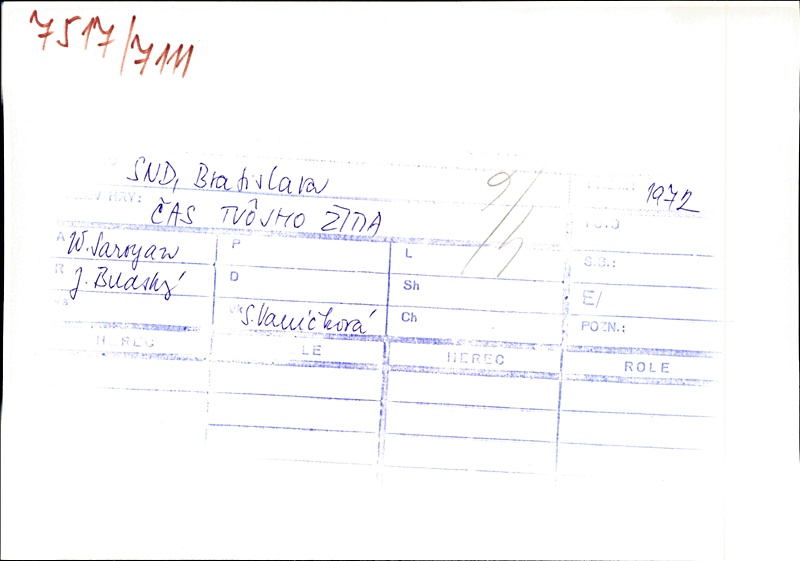 7517/7111
SND, Bratislava
1972
HRY: ČAS TVÔJHO ŽITIA
FOTO
A W. Saroyan P L S.B.:
R J. Budský D Sh E/
S. Vaníčková Ch POZN.:
HEREC LE HEREC ROLE